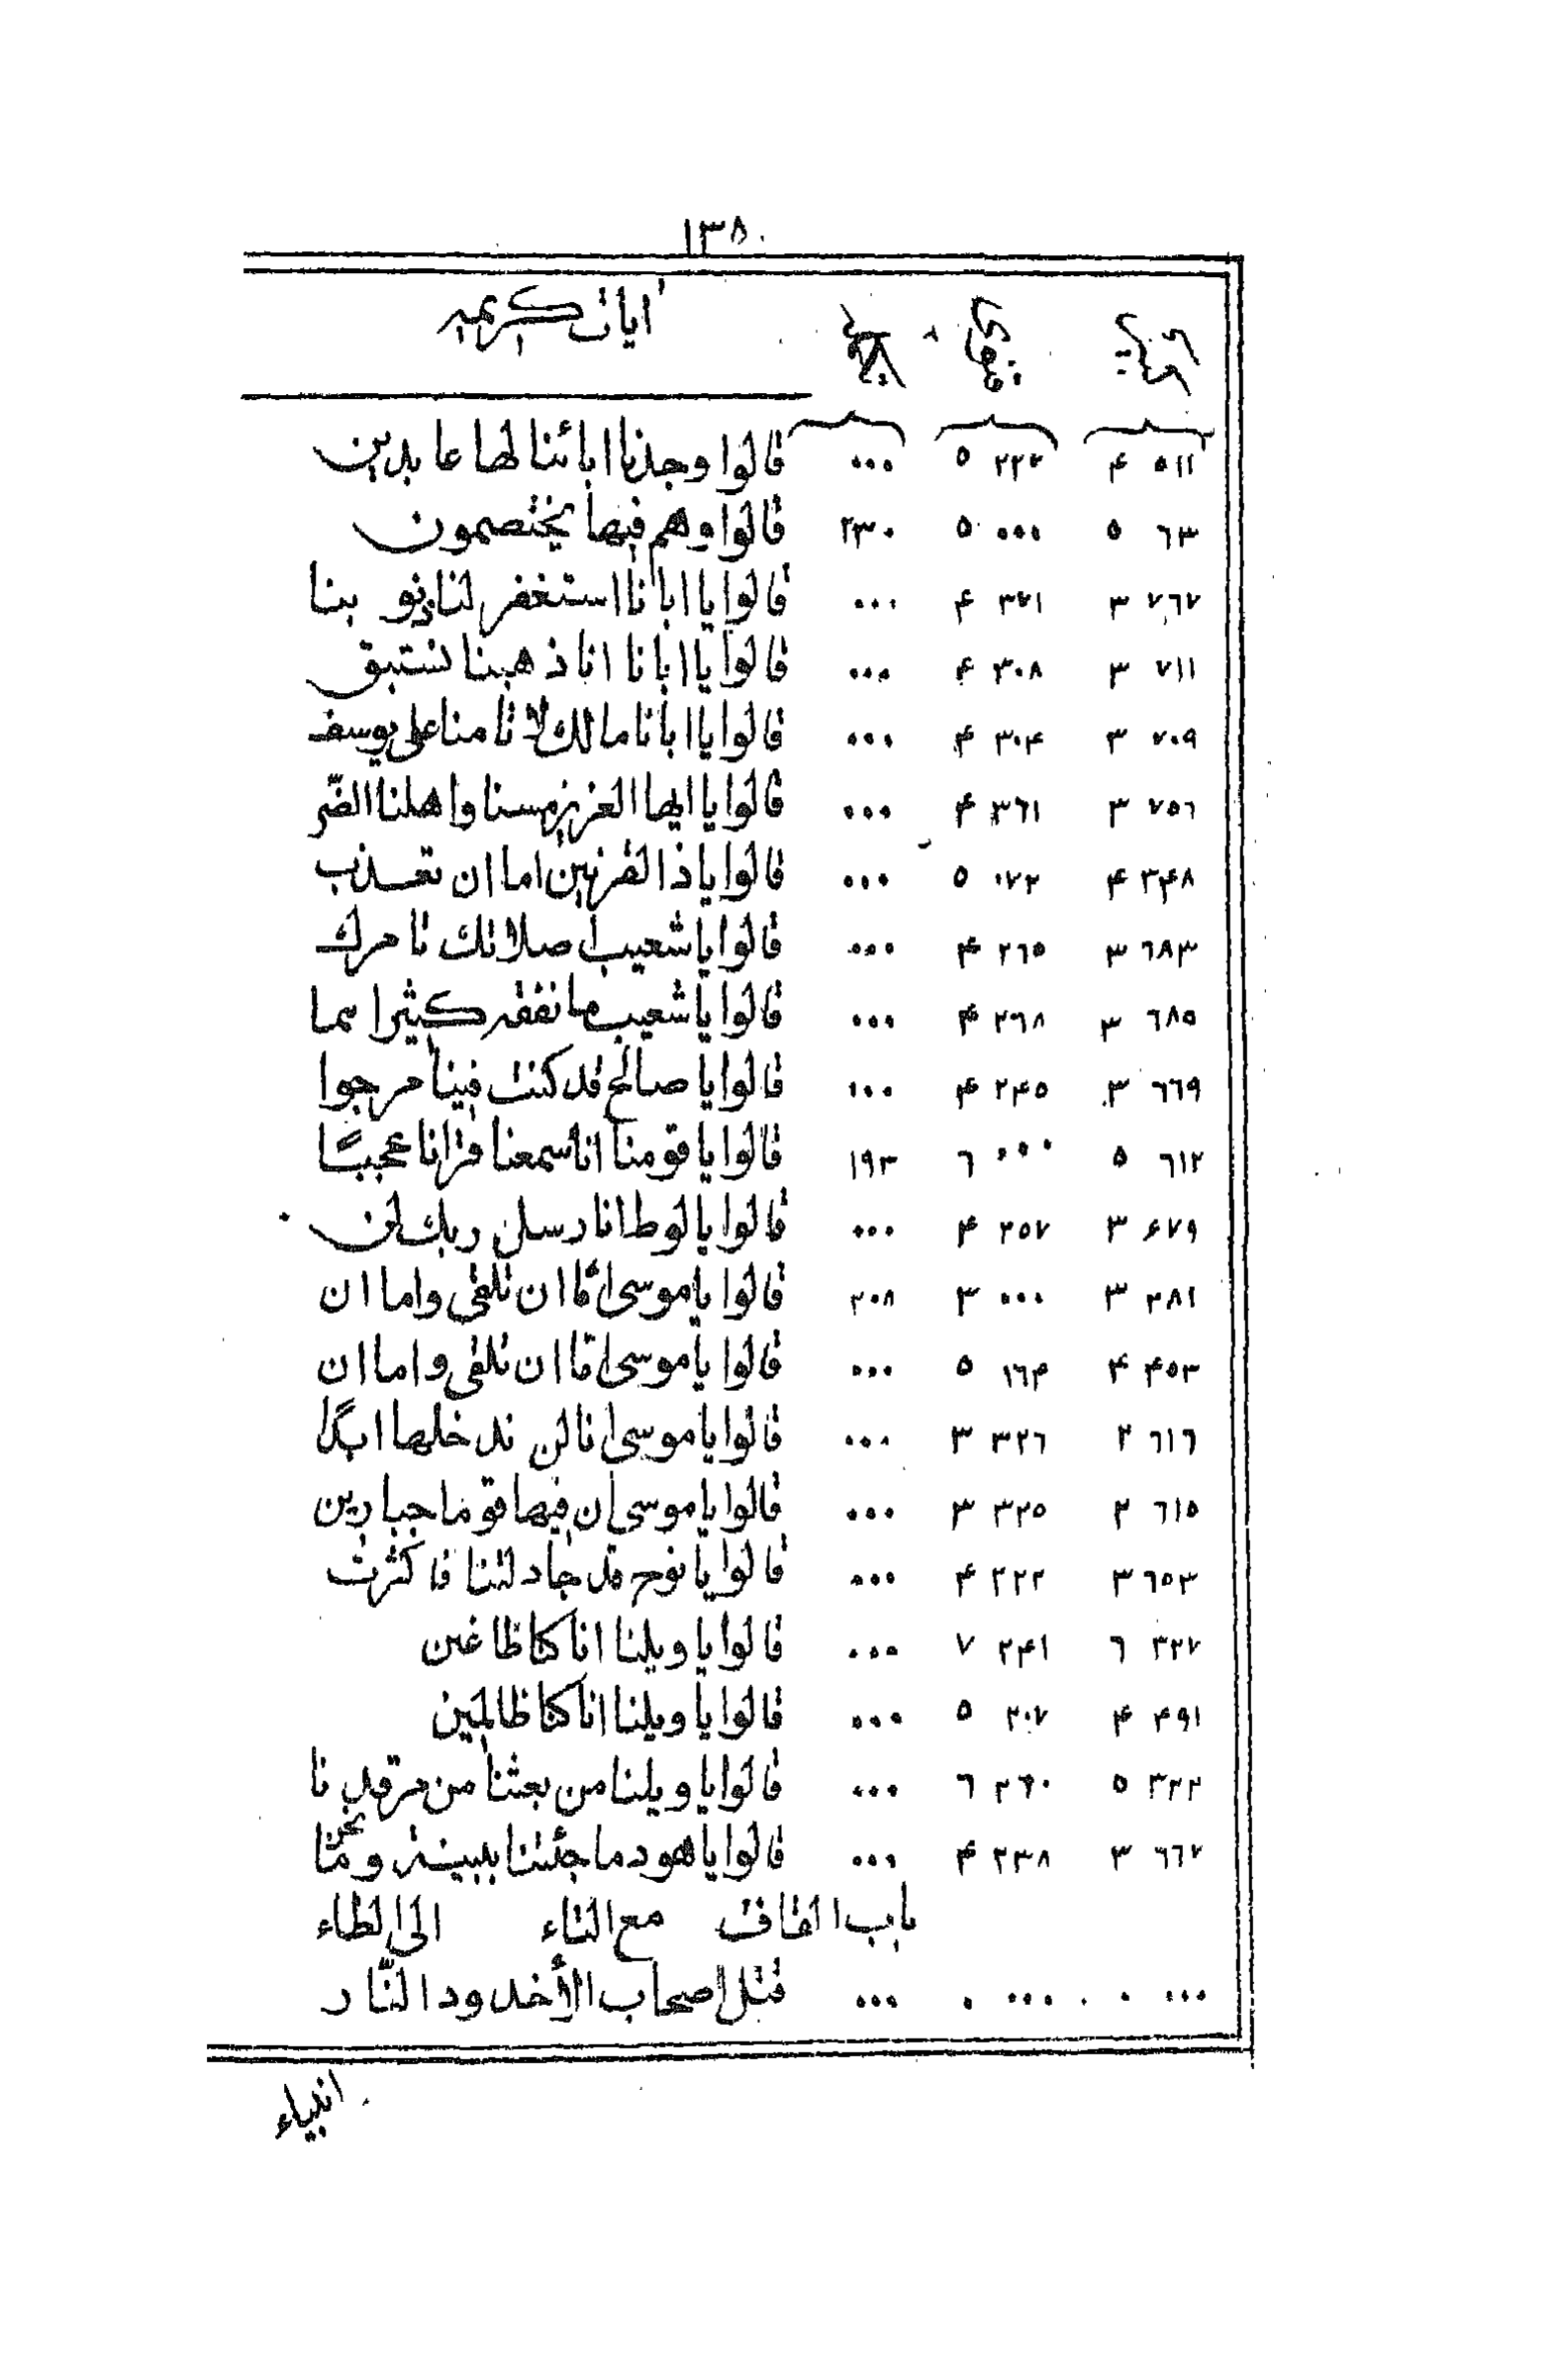 ١٣٨
ايات كريمه
٥١١ ٤ ٢٢٢ ٥ ... قالوا وجدنا ابائنا لها عابدين
٦٣ ٥ ... ٥ ٢٣٠ قالوا وهم فيها يختصمون
٧٦٧ ٣ ٣٧١ ۴ ... قالوا يا ابانا استغفر لنا ذنو بنا
٧١١ ٣ ٣٠٨ ۴ ... قالوا يا ابانا انا ذهبنا نستبق
٧٠٩ ٣ ٣٠۴ ۴ ... قالوا يا ابانا مالك لا تامنا على يوسف
٧٥٦ ٣ ٣٦١ ۴ ... قالوا يا ايها العزيز مسنا واهلنا الضّر
٣۴٨ ۴ ٠٧٢ ٥ ... قالوا ياذا القرنين اما ان تعذب
٦٨٣ ٣ ٢٦٥ ۴ ... قالوا يا شعيب اصلاتك تامرك
٦٨٥ ٣ ٢٦٨ ۴ ... قالوا يا شعيب ما نفقه كثيرا مما
٦٦٩ ٣ ٢۴٥ ۴ ... قالوا يا صالح قد كنت فينا مرجوا
٦١٢ ٥ ... ٦ ١٩٣ قالوا يا قومنا انا سمعنا قرانا عجبًا
۶٧٩ ٣ ٢٥٧ ۴ ... قالوا يا لوط انا رسل ربك لن
٢٨١ ٣ ... ٣ ٢٠٨ قالوا يا موسى امّا ان تلقى واما ان
۴٥٣ ۴ ١٦۴ ٥ ... قالوا يا موسى امّا ان تلقى واما ان
٦١٦ ٢ ٣٢٦ ٣ ... قالوا يا موسى انا لن ندخلها ابدًا
٦١٥ ٢ ٣٢٥ ٣ ... قالوا يا موسى ان فيها قوما جبارين
٦٥٣ ٣ ٢٢٢ ۴ ... قالوا يا نوح قد جادلتنا فاكثرت
٣٢٧ ٦ ٢۴١ ٧ ... قالوا يا ويلنا انا كنا طاغين
۴٩١ ۴ ٢٠٧ ٥ ... قالوا يا ويلنا انا كنا ظالمين
٣٢٢ ٥ ٢٦٠ ٦ ... قالوا يا ويلنا من بعثنا من مرقدنا
٦٦٧ ٣ ٢٣٨ ۴ ... قالوا يا هود ما جئتنا ببينة وما نحن
باب القاف مع التاء الى الطاء
... . ... . ... قتل اصحاب الأخدود النّار
انبياء